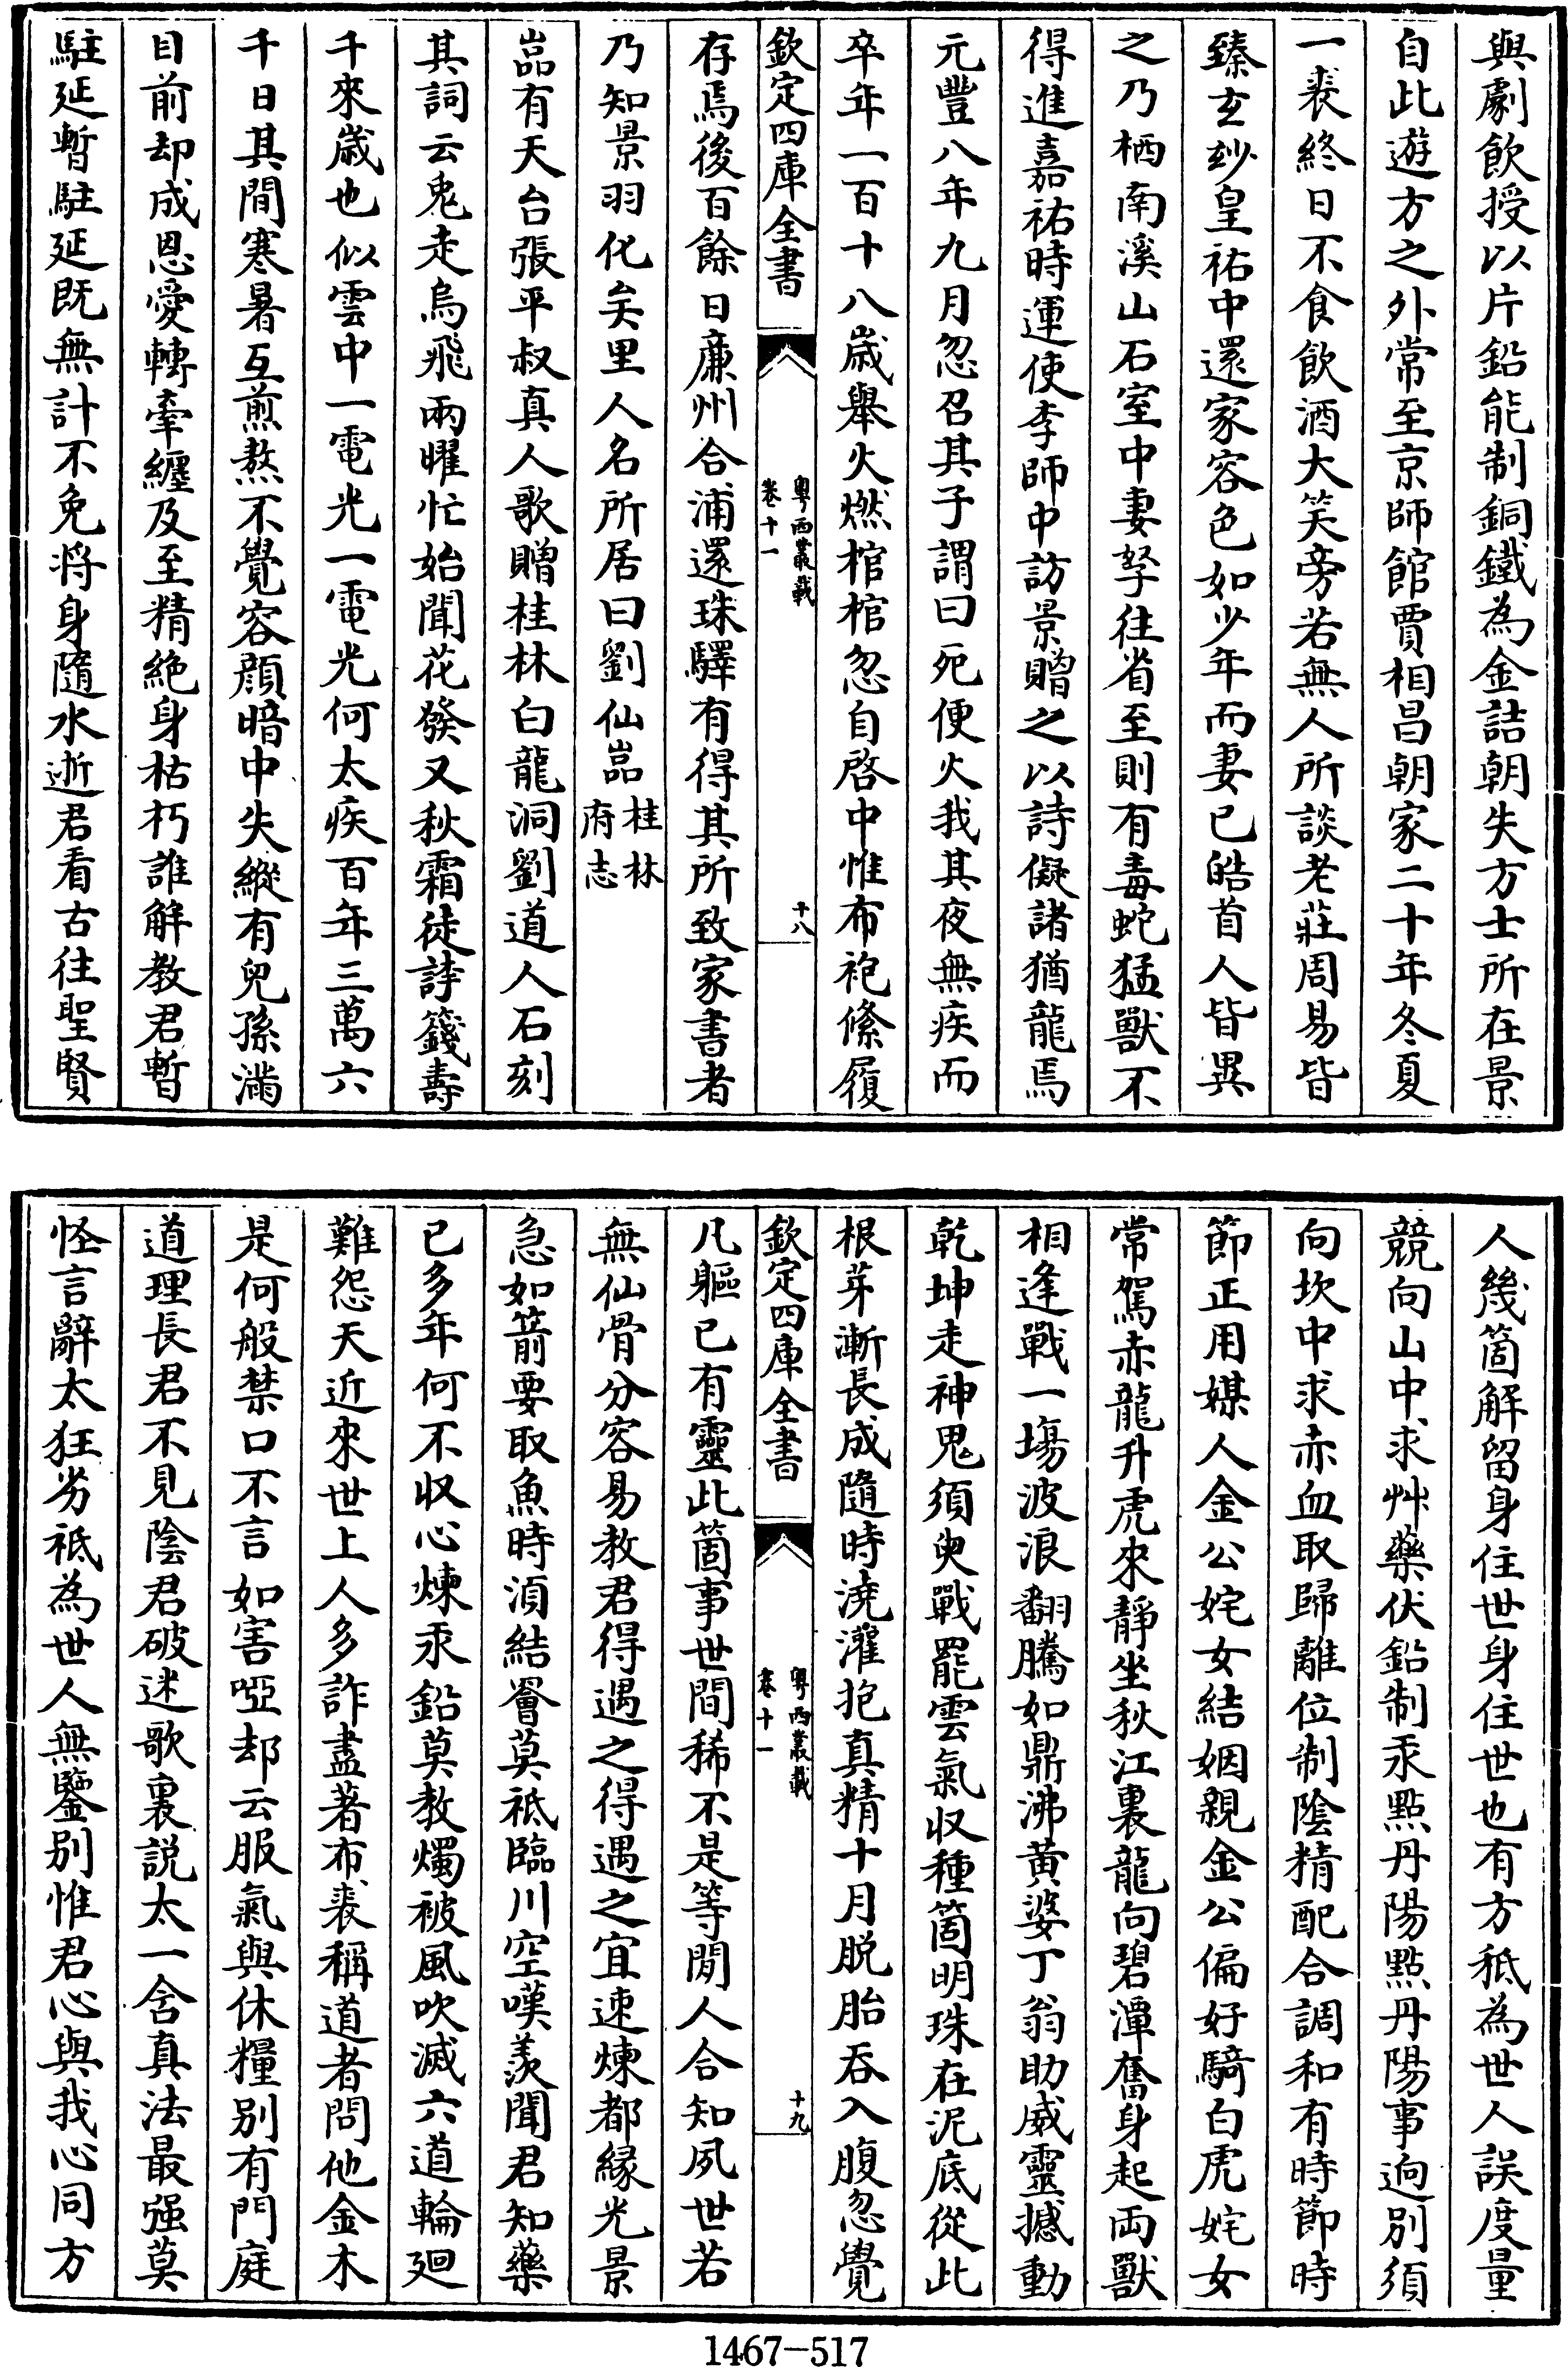 與劇飲授以片鉛能制銅鐵為金詰朝失方士所在景
自此遊方之外常至京師館賈相昌朝家二十年冬夏
一裘終日不食飲酒大笑旁若無人所談老莊周易皆
臻玄玅皇祐中還家容色如少年而妻已皓首人皆異
之乃栖南溪山石室中妻孥往省至則有毒蛇猛獸不
得進嘉祐時運使李師中訪景贈之以詩儗諸猶龍焉
元豐八年九月忽召其子謂曰死便火我其夜無疾而
卒年一百十八歲舉火燃棺棺忽自啓中惟布袍絛履
欽定四庫全書
粵西叢載
卷十一
十八
存焉後百餘日廉州合浦還珠驛有得其所致家書者
乃知景羽化矣里人名所居曰劉仙嵓桂林
府志
嵓有天台張平叔真人歌贈桂林白龍洞劉道人石刻
其詞云兎走烏飛兩曜忙始聞花發又秋霜徒誇籛壽
千來歲也似雲中一電光一電光何太疾百年三萬六
千日其間寒暑互煎熬不覺容顔暗中失縱有兒孫滿
目前却成恩愛轉牽纏及至精絶身枯朽誰解教君暫
駐延暫駐延既無計不免將身隨水逝君看古往聖賢
人幾箇解留身住世身住世也有方秪為世人誤度量
競向山中求艸藥伏鉛制汞點丹陽點丹陽事迥别須
向坎中求赤血取歸離位制陰精配合調和有時節時
節正用媒人金公姹女結姻親金公偏好騎白虎姹女
常駕赤龍升虎來靜坐秋江裏龍向碧潭奮身起兩獸
相逢戰一塲波浪翻騰如鼎沸黄婆丁翁助威靈撼動
乾坤走神鬼須臾戰罷雲氣収種箇明珠在泥底從此
根芽漸長成隨時澆灌抱真精十月脱胎吞入腹忽覺
欽定四庫全書
粵西叢載
卷十一
十九
凡軀已有靈此箇事世間稀不是等閒人合知夙世若
無仙骨分容易教君得遇之得遇之宜速煉都緣光景
急如箭要取魚時湏結罾莫祗臨川空嘆羨聞君知藥
已多年何不収心煉汞鉛莫教燭被風吹滅六道輪廻
難怨天近來世上人多詐盡著布裘稱道者問他金木
是何般禁口不言如害啞却云服氣與休糧别有門庭
道理長君不見陰君破迷歌裏説太一含真法最强莫
怪言辭太狂劣祗為世人無鑒别惟君心與我心同方
1467-517